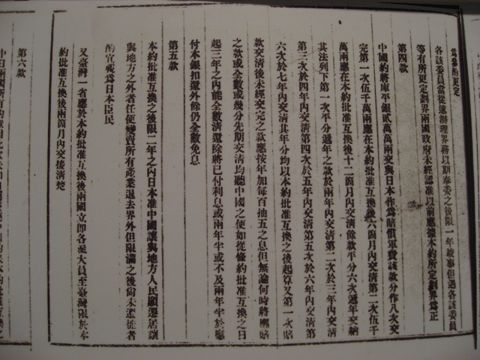 各該委員等當從速辦理界務以期奉委之後限一年竣事但遇各該委員
等有所更定劃界兩國政府未經認准以前應據本約所定劃界為正
第四款
中國約將庫平銀貳萬萬兩交與日本作為賠償軍費該款分作八次交
完第一次伍千萬兩應在本約批准互換後六個月內交清第二次伍千
萬兩應在本約批准互換後十二個月內交清餘款平分六次遞年交納
其法列下第一次平分遞年之款於兩年內交清第二次於三年內交清
第三次於四年內交清第四次於五年內交清第五次於六年內交清第
六次於七年內交清其年分均以本約批准互換之後起算又第一次賠
款交清後未經交完之款應按年加每百抽五之息但無論何時將應賠
之款或全數或幾分先期交清均聽中國之便如從條約批准互換之日
起三年之內能全數清還除將已付利息或兩年半或不及兩年半於應
付本銀扣還外餘仍全數免息
第五款
本約批准互換之後限二年之內日本准中國讓與地方人民願遷居讓
與地方之外者任便變賣所有產業退去界外但限滿之後尚未遷徙者
酌宜視為日本臣民
又臺灣一省應於本約批准互換後兩國立即各派大員至臺灣限於本
約批准互換後兩個月內交接清楚
第六款